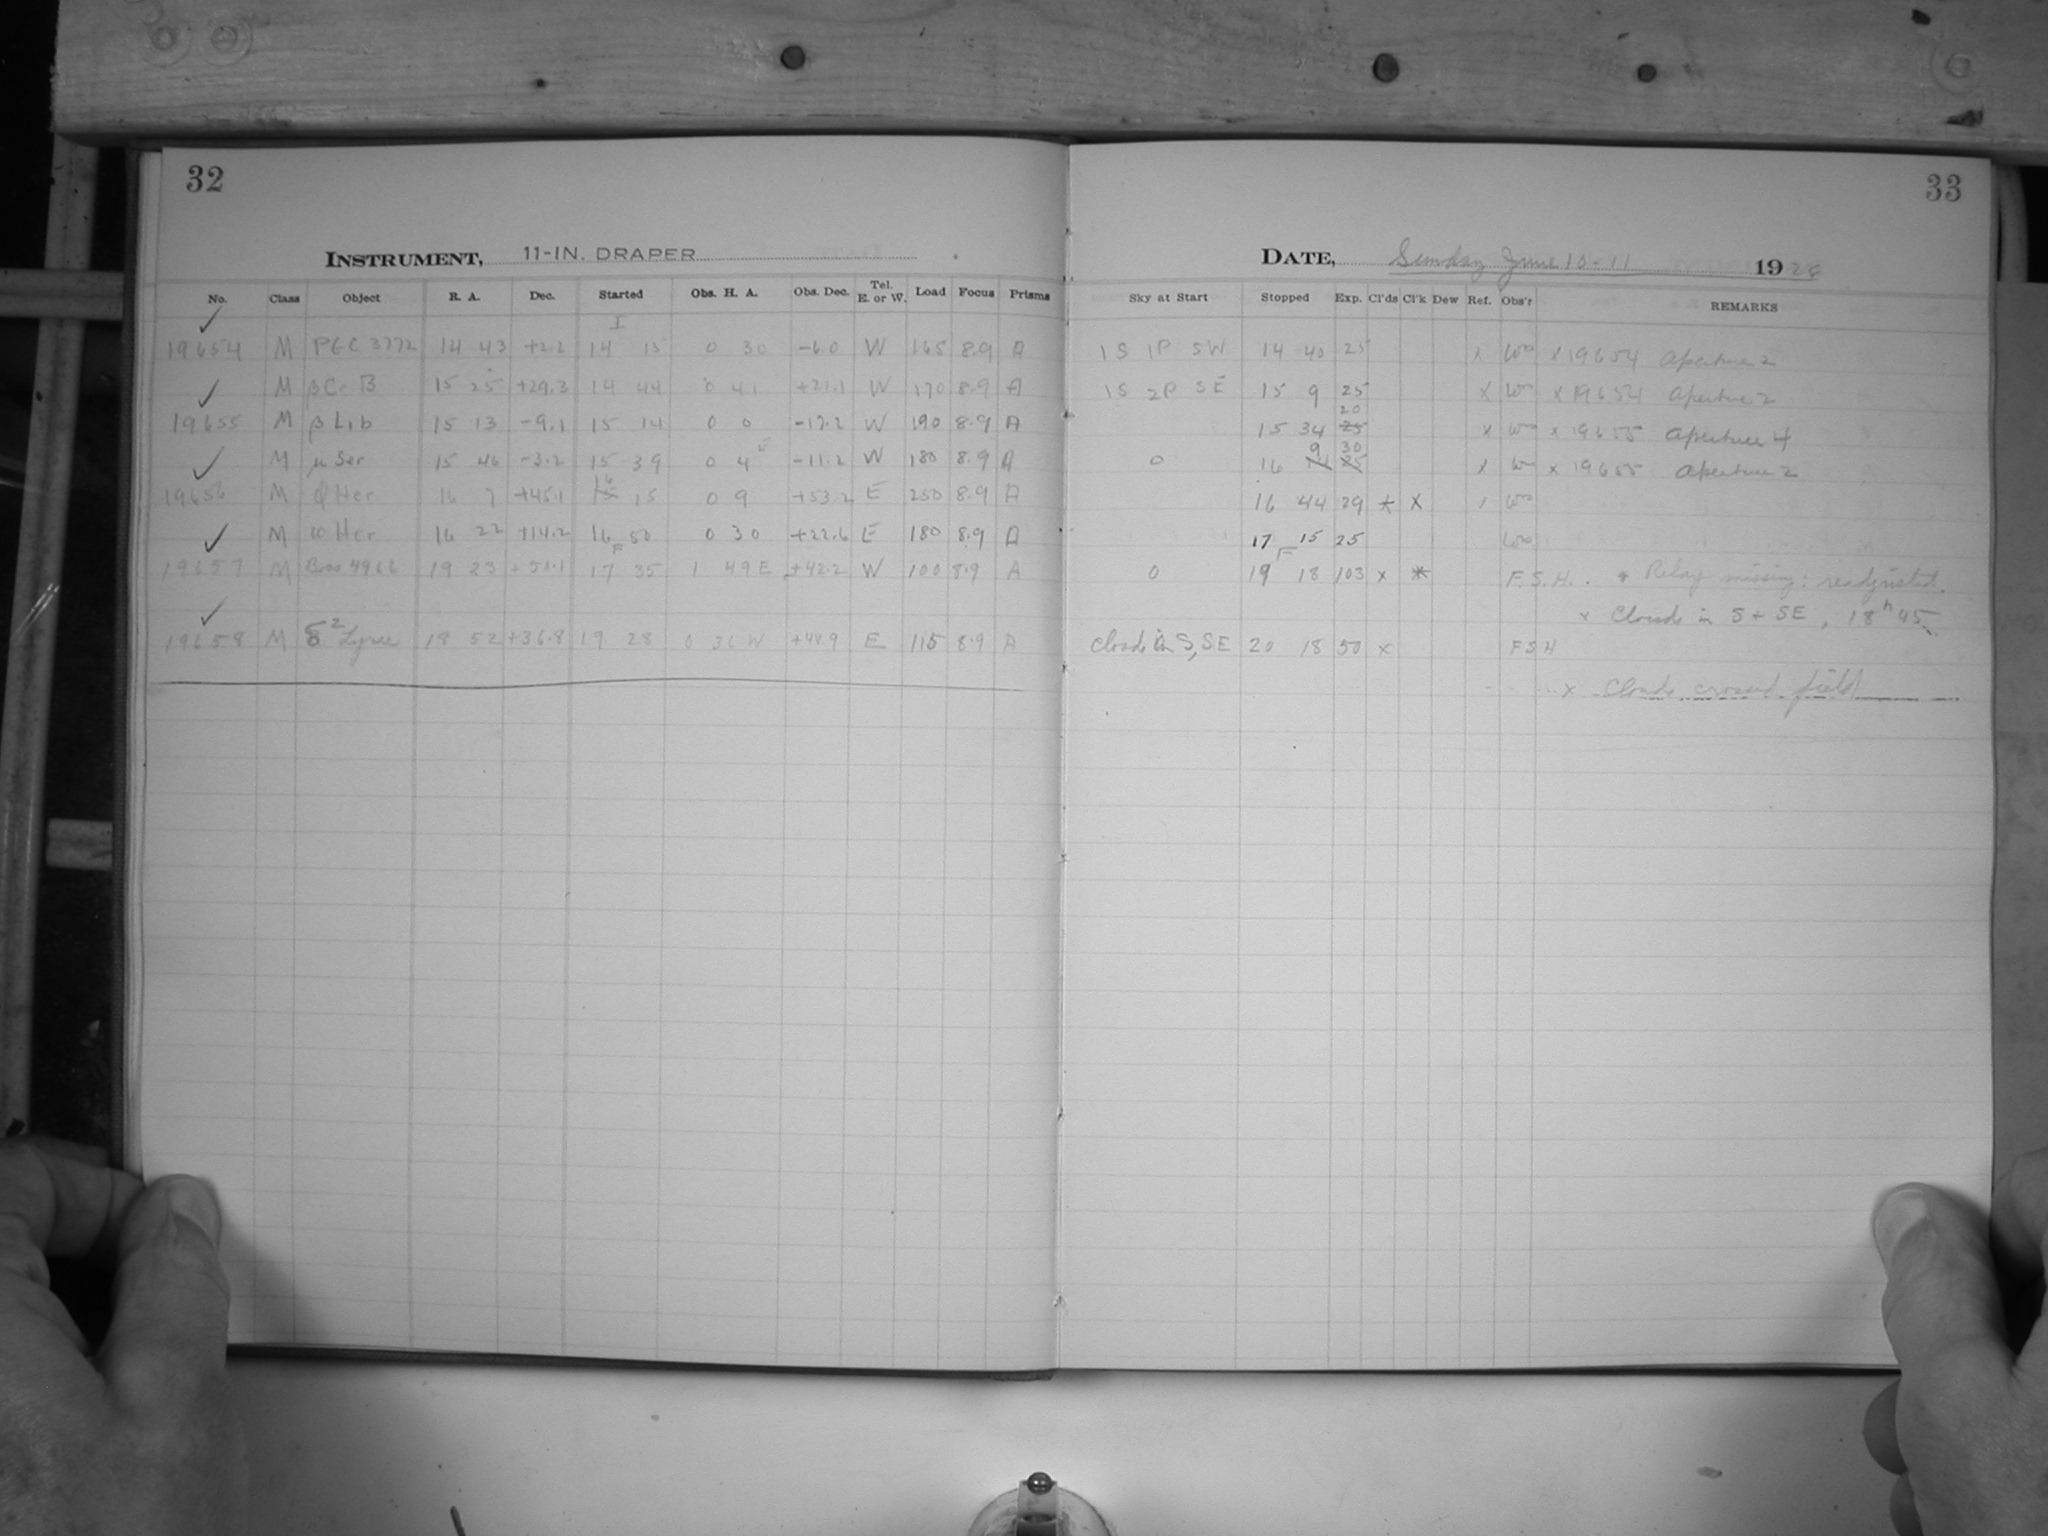 32
INSTRUMENT, 11-IN. DRAPER
No. Class Object R. A. Dec. Started Obs. H. A. Obs. Dec. Tel. E. or W. Load Focus Prisms
I
19654 M PGC 3772 14 43 +2.2 14 15 0 30 -6.0 W 165 8.9 A
M β Cr B 15 25 +29.3 14 44 0 41 +21.1 W 170 8.9 A
19655 M β Lib 15 13 -9.1 15 14 0 0 -17.2 W 190 8.9 A
M μ Ser 15 46 -3.2 15 39 0 4 E -11.2 W 180 8.9 A
19656 M φ Her 16 7 +45.1 16 15 0 9 +53.2 E 250 8.9 A
M ω Her 16 22 +14.2 16 50 0 30 +22.6 E 180 8.9 A
F
19657 M Boss 4966 19 23 +51.1 17 35 1 49 E +42.2 W 100 8.9 A
19658 M δ² Lyrae 18 52 +36.8 19 28 0 36 W +44.9 E 115 8.9 A
33
DATE, Sunday June 10-11 1928
Sky at Start Stopped Exp. Cl'ds Cl'k Dew Ref. Obs'r REMARKS
1S 1P SW 14 40 25 x x 19654 Aperture 2
1S 2P SE 15 9 25 x x 19654 Aperture 2
15 34 20 25 x x 19655 Aperture 4
0 16 9 14 30 25 x x 19655 Aperture 2
16 44 29 * x
17 15 25
F
0 19 18 103 x * F.S.H. * Relay missing: readjusted.
x Clouds in S + SE, 18h 45
Clouds in S, SE 20 18 50 x FSH
x Clouds crossed field